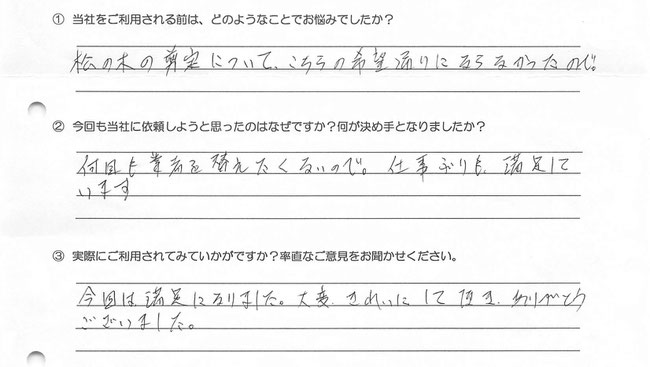 ① 当社をご利用される前は、どのようなことでお悩みでしたか？
松の木の剪定について、こちらの希望通りにならなかったので。
② 今回も当社に依頼しようと思ったのはなぜですか？何が決め手となりましたか？
何回も業者を替えたくないので。仕事ぶりも、満足して
います
③ 実際にご利用されてみていかがですか？率直なご意見をお聞かせください。
今回は満足になりました。大変、きれいにして頂き、ありがとう
ございました。